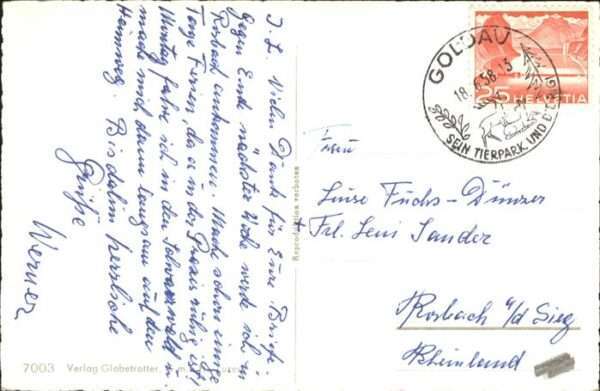 J. L. Vielen Dank für Eure Briefe.
Gegen Ende nächster Woche werde ich in
Rosbach ankommen. Mache schon einige
Tage Ferien, da es in der Praxis ruhig ist.
Montag fahre ich in den Schwarzwald &
mache mich dann langsam auf den
Heimweg. Bis dahin herzliche
Grüße
Werner
7003 Verlag Globetrotter
Reproduktion verboten
GOLDAU
18. 58-13
SEIN TIERPARK UND
25 HELVETIA
Frau
Luise Fuchs-Dünzer
+ Frl. Leni Sander
Rosbach a/d Sieg
Rheinland